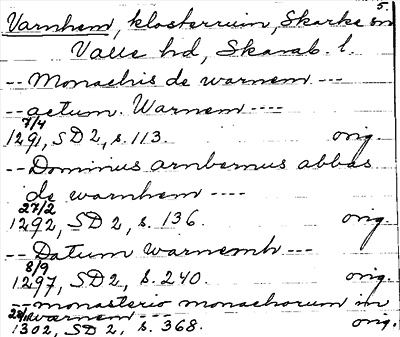 5.
Varnhem, klosterruin, Skarke sn
Valle hd, Skarab. l.
-- Monachis de warnem ---
-- actum. Warnem ----
7/4
1291, SD 2, s. 113. orig.
-- Dominus arnbernus abbas
de warnhem ----
27/2
1292, SD 2, s. 136. orig.
-- Datum warnemh ---
8/9
1297, SD2, s. 240. orig.
-- monasterio monachorum in
warnem ---
1302, SD 2, s. 368. orig.